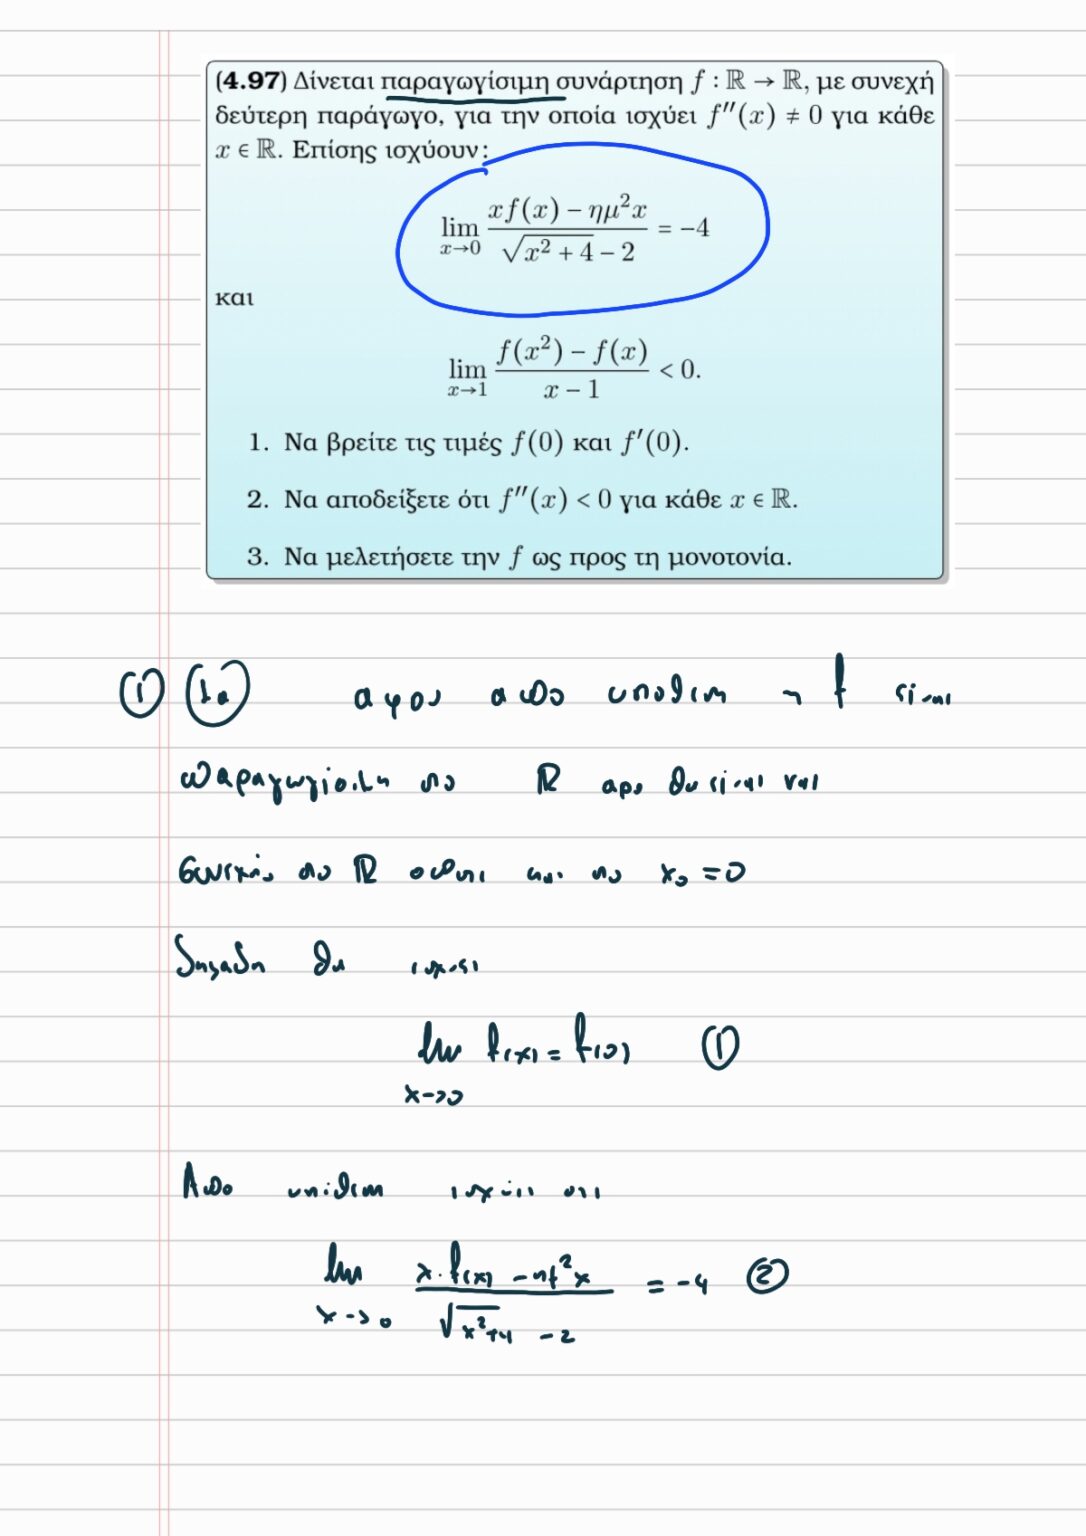 (4.97) Δίνεται παραγωγίσιμη συνάρτηση f : ℝ → ℝ, με συνεχή
δεύτερη παράγωγο, για την οποία ισχύει f''(x) ≠ 0 για κάθε
x ∈ ℝ. Επίσης ισχύουν:
lim_{x→0} (xf(x) − ημ²x)/(√(x² + 4) − 2) = −4
και
lim_{x→1} (f(x²) − f(x))/(x − 1) < 0.
1. Να βρείτε τις τιμές f(0) και f'(0).
2. Να αποδείξετε ότι f''(x) < 0 για κάθε x ∈ ℝ.
3. Να μελετήσετε την f ως προς τη μονοτονία.
① 1α αφου απο υποθεση η f ειναι
παραγωγισιμη στο ℝ αρα θα ειναι και
συνεχής στο ℝ οποτε και στο x₀ = 0
δηλαδη θα ισχυει
lim_{x→0} f(x) = f(0) ①
Απο υποθεση ισχύει οτι
lim_{x→0} (x·f(x) − ημ²x)/(√(x²+4) − 2) = −4 ②